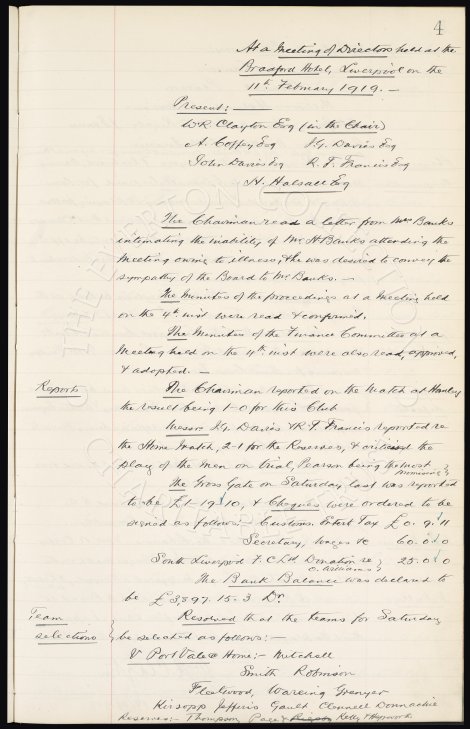 4
At a Meeting of Directors held at the
Bradford Hotel, Liverpool on the
11th February 1919. —
Present: —
W.R. Clayton Esq (in the Chair)
A. Coffey Esq J.G. Davies Esq
John Davies Esq R.F. Francis Esq
H. Halsall Esq
The Chairman read a letter from Mrs Banks
intimating the inability of Mr H Banks attending the
Meeting owing to illness, & he was desired to convey the
sympathy of the Board to Mr Banks. —
The Minutes of the proceedings at a Meeting held
on the 4th inst were read & confirmed.
The Minutes of the Finance Committee at a
Meeting held on the 4th inst were also read, approved,
& adopted. —
Reports The Chairman reported on the Match at Hanley
the result being 1-0 for this Club
Messrs J.G. Davies & R.F. Francis reported re
the Home Match, 2-1 for the Reserves, & criticised the
play of the men on trial, Pearson being the most promising
The Gross Gate on Saturday last was reported
to be £1-19-10, & Cheques were ordered to be
signed as follows: Customs. Entert Tax £0. 9. 11
Secretary, Wages &c 60. 0. 0
South Liverpool F.C Ltd Donation re O. Williams 25. 0. 0
The Bank Balance was declared to
be £3,897. 15. 3 Dr.
Team selections Resolved that the teams for Saturday
be selected as follows: —
V Port Vale @ Home: — Mitchell
Smith Robinson
Fleetwood, Wareing Grenyer
Kirsopp Jefferis Gault Clennell Donnachie
Reserves: — Thompson, Page & Kelly & Hepworth
THE EVERTON CO